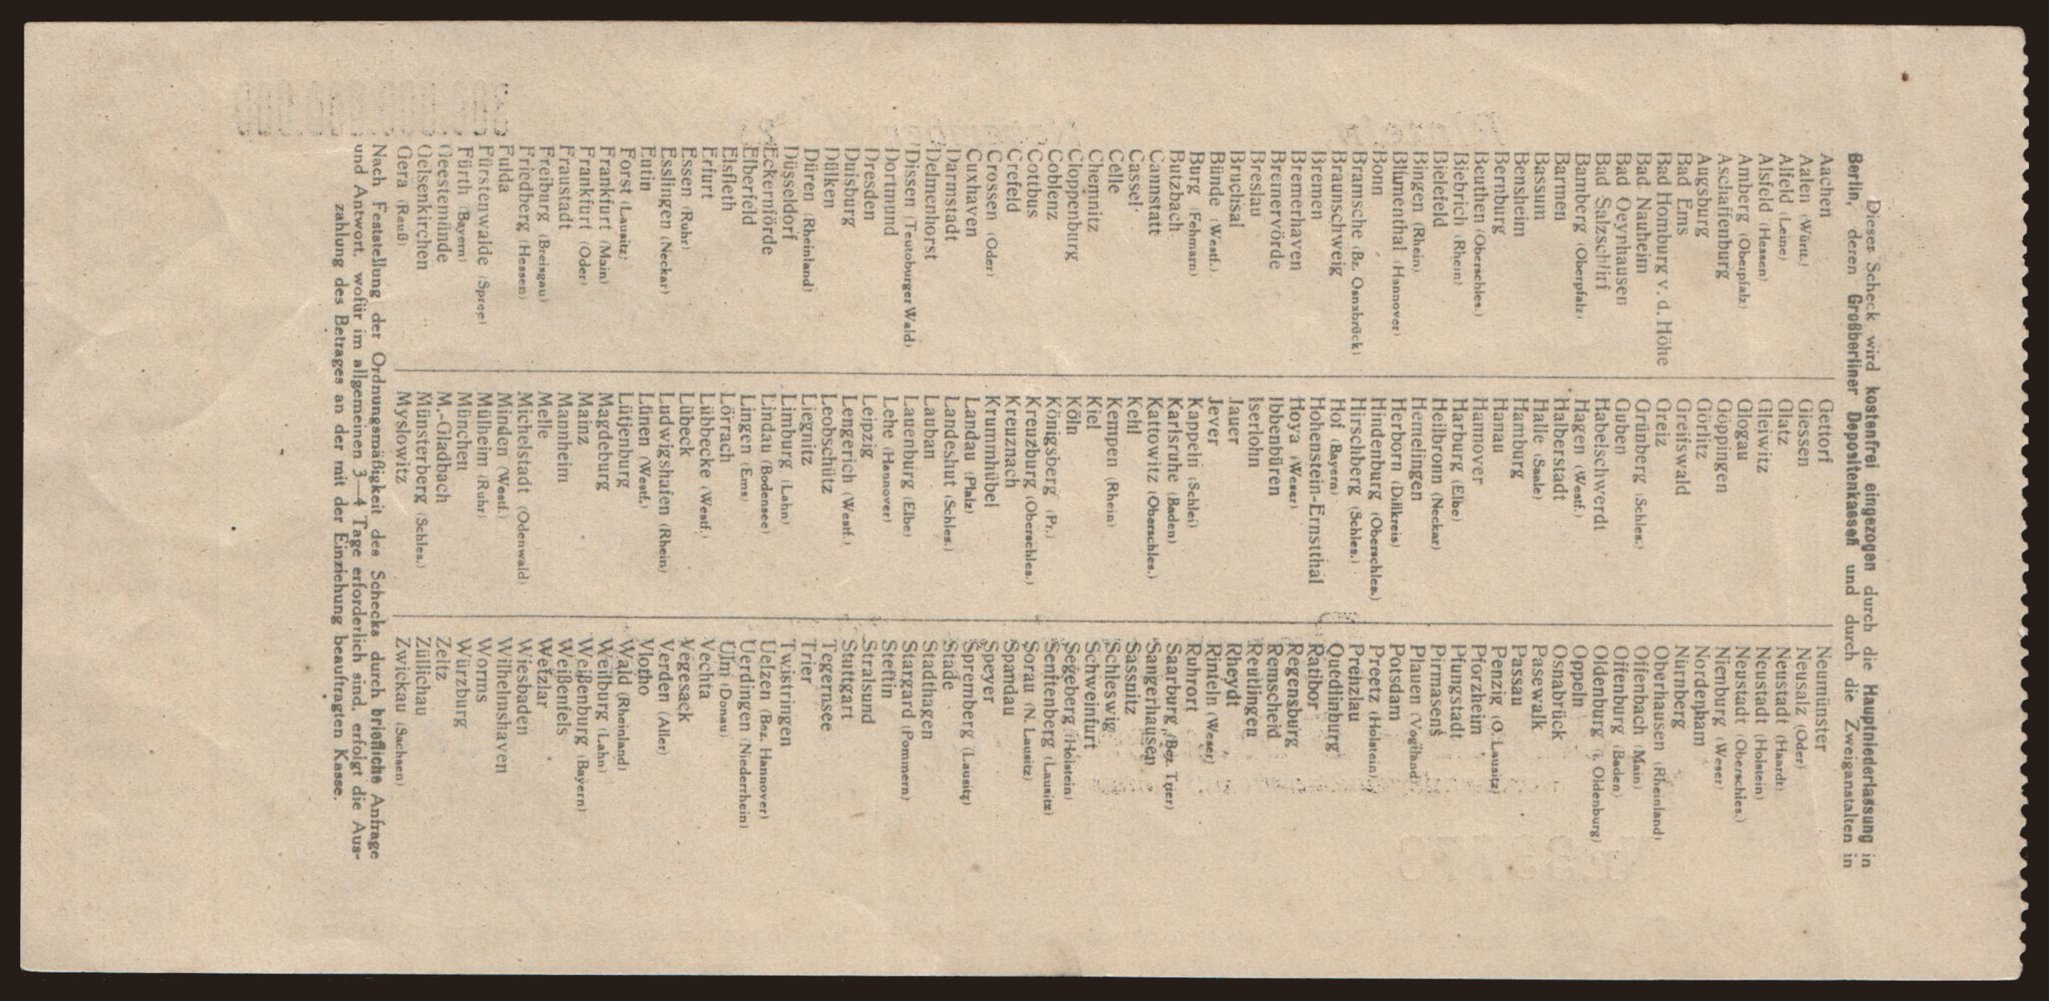 Dieser Scheck wird kostenfrei eingezogen durch die Hauptniederlassung in
Berlin, deren Großberliner Depositenkassen und durch die Zweiganstalten in
Aachen
Aalen (Württ.)
Alfeld (Leine)
Alsfeld (Hessen)
Amberg (Oberpfalz)
Aschaffenburg
Augsburg
Bad Ems
Bad Homburg v. d. Höhe
Bad. Nauheim
Bad Oeynhausen
Bad Salzschlirf
Bamberg (Oberpfalz)
Barmen
Bassum
Bensheim
Bernburg
Beuthen (Oberschles.)
Biebrich (Rhein)
Bielefeld
Bingen (Rhein)
Blumenthal (Hannover)
Bonn
Bramsche (Bz. Osnabrück)
Braunschweig
Bremen
Bremerhaven
Bremervörde
Breslau
Bruchsal
Bünde (Westf.)
Burg (Fehmarn)
Butzbach
Cannstatt
Cassel
Celle
Chemnitz
Cloppenburg
Coblenz
Cottbus
Crefeld
Crossen (Oder)
Cuxhaven
Darmstadt
Delmenhorst
Dissen (Teutoburger Wald)
Dortmund
Dresden
Duisburg
Dülken
Düren (Rheinland)
Düsseldorf
Eckernförde
Elberfeld
Elsfleth
Erfurt
Essen (Ruhr)
Esslingen (Neckar)
Eutin
Forst (Lausitz)
Frankfurt (Main)
Frankfurt (Oder)
Fraustadt
Freiburg (Breisgau)
Friedberg (Hessen)
Fulda
Fürstenwalde (Spree)
Fürth (Bayern)
Geestemünde
Gelsenkirchen
Gera (Reuß)
Gettorf
Giessen
Glatz
Gleiwitz
Glogau
Göppingen
Görlitz
Greifswald
Greiz
Grünberg (Schles.)
Guben
Habelschwerdt
Hagen (Westf.)
Halberstadt
Halle (Saale)
Hamburg
Hanau
Hannover
Harburg (Elbe)
Heilbronn (Neckar)
Hemelingen
Herborn (Dillkreis)
Hindenburg (Oberschles.)
Hirschberg (Schles.)
Hof (Bayern)
Hohenstein-Ernstthal
Hoya (Weser)
Ibbenbüren
Iserlohn
Jauer
Jever
Kappeln (Schlei)
Karlsruhe (Baden)
Kattowitz (Oberschles.)
Kehl
Kempen (Rhein)
Kiel
Köln
Königsberg (Pr.)
Kreuzburg (Oberschles.)
Kreuznach
Krummhübel
Landau (Pfalz)
Landeshut (Schles.)
Lauban
Lauenburg (Elbe)
Lehe (Hannover)
Leipzig
Lengerich (Westf.)
Leobschütz
Liegnitz
Limburg (Lahn)
Lindau (Bodensee)
Lingen (Ems)
Lörrach
Lübbecke (Westf.)
Lübeck
Ludwigshafen (Rhein)
Lünen (Westf.)
Lütjenburg
Magdeburg
Mainz
Mannheim
Melle
Michelstadt (Odenwald)
Minden (Westf.)
Mülheim (Ruhr)
München
M.-Gladbach
Münsterberg (Schles.)
Myslowitz
Neumünster
Neusalz (Oder)
Neustadt (Haardt)
Neustadt (Holstein)
Neustadt (Oberschles.)
Nienburg (Weser)
Nordenham
Nürnberg
Oberhausen (Rheinland)
Offenbach (Main)
Offenburg (Baden)
Oldenburg (i. Oldenburg)
Oppeln
Osnabrück
Pasewalk
Passau
Penzig (O. Lausitz)
Pforzheim
Pfungstadt
Pirmasens
Plauen (Vogtland)
Potsdam
Preetz (Holstein)
Prenzlau
Quedlinburg
Ratibor
Regensburg
Remscheid
Reutlingen
Rheydt
Rinteln (Weser)
Ruhrort
Saarburg (Bez. Trier)
Sangerhausen
Sassnitz
Schleswig
Schweinfurt
Segeberg (Holstein)
Senftenberg (Lausitz)
Sorau (N. Lausitz)
Spandau
Speyer
Spremberg (Lausitz)
Stade
Stadthagen
Stargard (Pommern)
Stettin
Stralsund
Stuttgart
Tegernsee
Trier
Twistringen
Uelzen (Bez. Hannover)
Uerdingen (Niederrhein)
Ulm (Donau)
Vechta
Vegesack
Verden (Aller)
Vlotho
Wald (Rheinland)
Weilburg (Lahn)
Weißenburg (Bayern)
Weißenfels
Wetzlar
Wiesbaden
Wilhelmshaven
Worms
Würzburg
Zeitz
Züllichau
Zwickau (Sachsen)
Nach Feststellung der Ordnungsmäßigkeit des Schecks durch briefliche Anfrage
und Antwort, wofür im allgemeinen 3—4 Tage erforderlich sind, erfolgt die Aus-
zahlung des Betrages an der mit der Einziehung beauftragten Kasse.